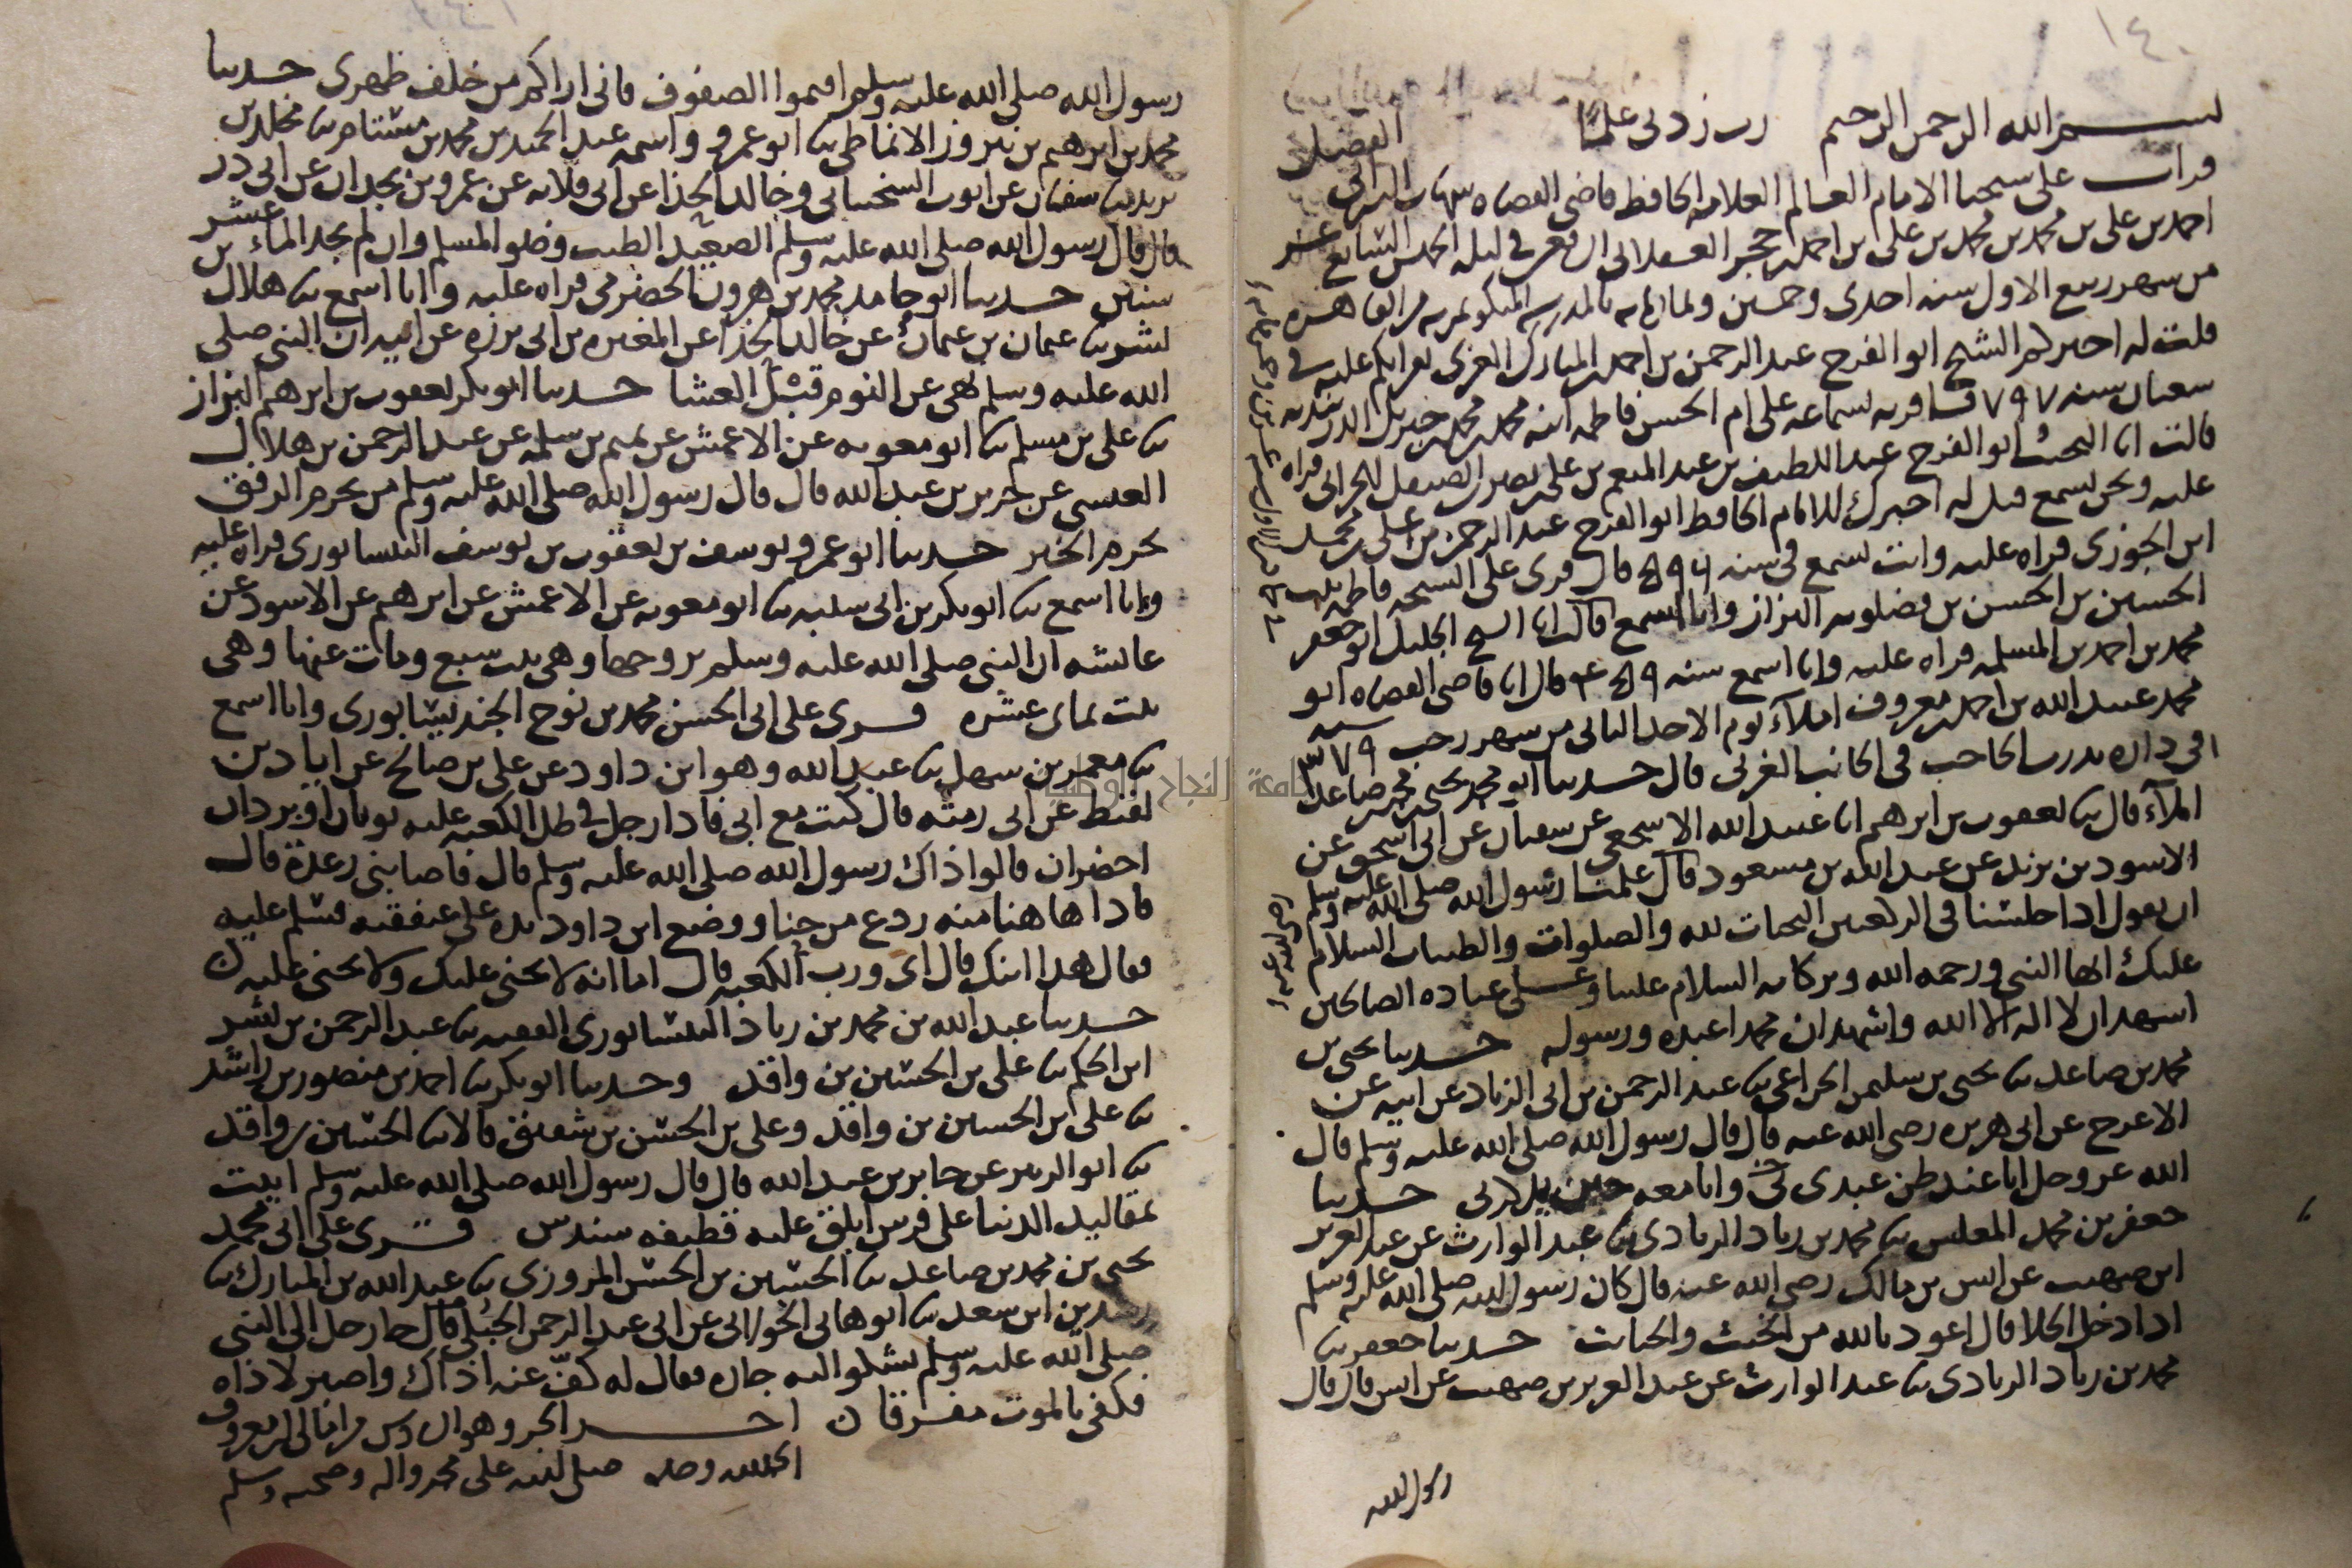 ١٤٠
بسم الله الرحمن الرحيم رب زدنى علما
قرات على شيخنا الامام العالم العلامه الحافظ قاضى القضاه شهاب الدين ابى الفضل
احمد بن على بن محمد بن محمد بن على بن احمد بن حجر العسقلانى الشافعى فى ليله الخميس السابع عشر
من شهر ربيع الاول سنه احدى وخمسين وثمانمايه بالمدرسه المنكوتمريه من القاهره
قلت له اخبركم الشيخ ابو الفرج عبد الرحمن بن احمد بن المبارك الغزى بقراتكم عليه فى
شعبان سنه ٧٩٧ فاقر به بسماعه على ام الحسن فاطمه ابنه محمد بن محمد بن جبريل الدربنديه
قالت انا النجيب ابو الفرج عبد اللطيف بن عبد المنعم بن على بن نصر بن الصيقل الحرانى قراه
عليه ونحن نسمع قيل له اخبرك الامام الحافظ ابو الفرج عبد الرحمن بن على بن محمد
ابن الجوزى قراه عليه وانت تسمع فى سنه ٥٩٦ قال قرى على الشيخه فاطمه بنت
الحسين بن الحسن بن فضلويه البزاز وانا اسمع قالت انا الشيخ الجليل ابو جعفر
محمد بن احمد بن المسلمه قراه عليه وانا اسمع سنه ٤٥٩ قال انا قاضى القضاه ابو
محمد عبيد الله بن احمد بن معروف املاء يوم الاحد الثانى من شهر رجب سنه ٣٧٩
فى داره بدرب الحاجب فى الجانب الغربى قال حدثنا ابو محمد يحيى بن محمد بن صاعد
املاء قال ثنا يعقوب بن ابرهيم انا عبيد الله الاشجعى عن سفيان عن ابى اسحق عن
الاسود بن يزيد عن عبد الله بن مسعود قال علمنا رسول الله صلى الله عليه وسلم
رضى الله عنه
ان نقول اذا جلسنا فى الركعتين التحيات لله والصلوات والطيبات السلام
عليك ايها النبى ورحمه الله وبركاته السلام علينا وعلى عباده الصالحين
اشهد ان لا اله الا الله واشهد ان محمدا عبده ورسوله حدثنا يحيى بن
محمد بن صاعد ثنا يحيى بن سليمن الخزاعى ثنا عبد الرحمن بن ابى الزناد عن ابيه عن
الاعرج عن ابى هريره رضى الله عنه قال قال رسول الله صلى الله عليه وسلم قال
الله عز وجل انا عند ظن عبدى بى وانا معه حين يذكرنى حدثنا
جعفر بن محمد المغلس ثنا محمد بن زياد الزيادى ثنا عبد الوارث عن عبد العزيز
ابن صهيب عن انس بن مالك رضى الله عنه قال كان رسول الله صلى الله عليه وسلم
اذا دخل الخلا قال اعوذ بالله من الخبث والخبائث حدثنا جعفر ثنا
محمد بن زياد الزيادى ثنا عبد الوارث عن عبد العزيز بن صهيب عن انس قال قال
رسول الله
رسول الله صلى الله عليه وسلم اقيموا الصفوف فانى اراكم من خلف ظهرى حدثنا
محمد بن ابرهيم بن نيروز الانماطى ثنا ابو عمرو واسمه عبد الحميد بن محمد بن مستام ثنا مخلد بن
يزيد ثنا سفيان عن ايوب السختيانى وخالد الحذا عن ابى قلابه عن عمرو بن بجدان عن ابى ذر
قال قال رسول الله صلى الله عليه وسلم الصعيد الطيب وضو المسلم وان لم يجد الماء عشر
سنين حدثنا ابو حامد محمد بن هرون الحضرمى قراه عليه وانا اسمع ثنا هلال بن
بشر ثنا عثمان بن عثمان عن خالد الحذا عن المغيره بن ابى برزه عن ابيه ان النبى صلى
الله عليه وسلم نهى عن النوم قبل العشا حدثنا ابو بكر يعقوب بن ابرهيم البزاز
ثنا على بن مسلم ثنا ابو معويه عن الاعمش عن تميم بن سلمه عن عبد الرحمن بن هلال
العبسى عن جرير بن عبد الله قال قال رسول الله صلى الله عليه وسلم من يحرم الرفق
يحرم الخير حدثنا ابو عمرو يوسف بن يعقوب بن يوسف النيسابورى قراه عليه
وانا اسمع ثنا ابو بكر بن ابى شيبه ثنا ابو معويه عن الاعمش عن ابرهيم عن الاسود عن
عائشه ان النبى صلى الله عليه وسلم تزوجها وهى بنت سبع ومات عنها وهى
بنت ثمان عشره قرى على ابى الحسن محمد بن نوح الجنديسابورى وانا اسمع
ثنا معمر بن سهل ثنا عبيد الله وهو ابن داود عن على بن صالح عن اياد بن
لقيط عن ابى رمثه قال كنت مع ابى فاذا رجل فى ظل الكعبه عليه ثوبان او بردان
اخضران قالوا ذاك رسول الله صلى الله عليه وسلم قال فاصابتنى رعدة قال
فاذا هاهنا منه ردع من حنا ووضع ابن داود يده على عنفقته فسلم عليه
فقال هذا ابنك قال اى ورب الكعبه قال اما انه لا يجنى عليك ولا تجنى عليه
حدثنا عبد الله بن محمد بن زياد النيسابورى الفقيه ثنا عبد الرحمن بن بشر
ابن الحكم ثنا على بن الحسين بن واقد وحدثنا ابو بكر ثنا احمد بن منصور بن راشد
ثنا على ابن الحسين بن واقد وعلى بن الحسن بن شقيق قالا ثنا الحسين بن واقد
ثنا ابو الزبير عن جابر بن عبد الله قال قال رسول الله صلى الله عليه وسلم اتيت
بمقاليد الدنيا على فرس ابلق عليه قطيفه سندس قرى على ابى محمد
يحيى بن محمد بن صاعد ثنا الحسين بن الحسن المروزى ثنا عبد الله بن المبارك ثنا
رشدين ابن سعد ثنا ابو هانى الخولانى عن ابى عبد الرحمن الحبلى قال جا رجل الى النبى
صلى الله عليه وسلم يشكوا اليه جاره فقال له كف عنه اذاك واصبر لاذاه
فكفى بالموت مفرقا اخر الجزو وهو من امالى ابن معروف
الحمد لله وحده صلى الله على محمد واله وصحبه وسلم
جامعة النجاح الوطنية